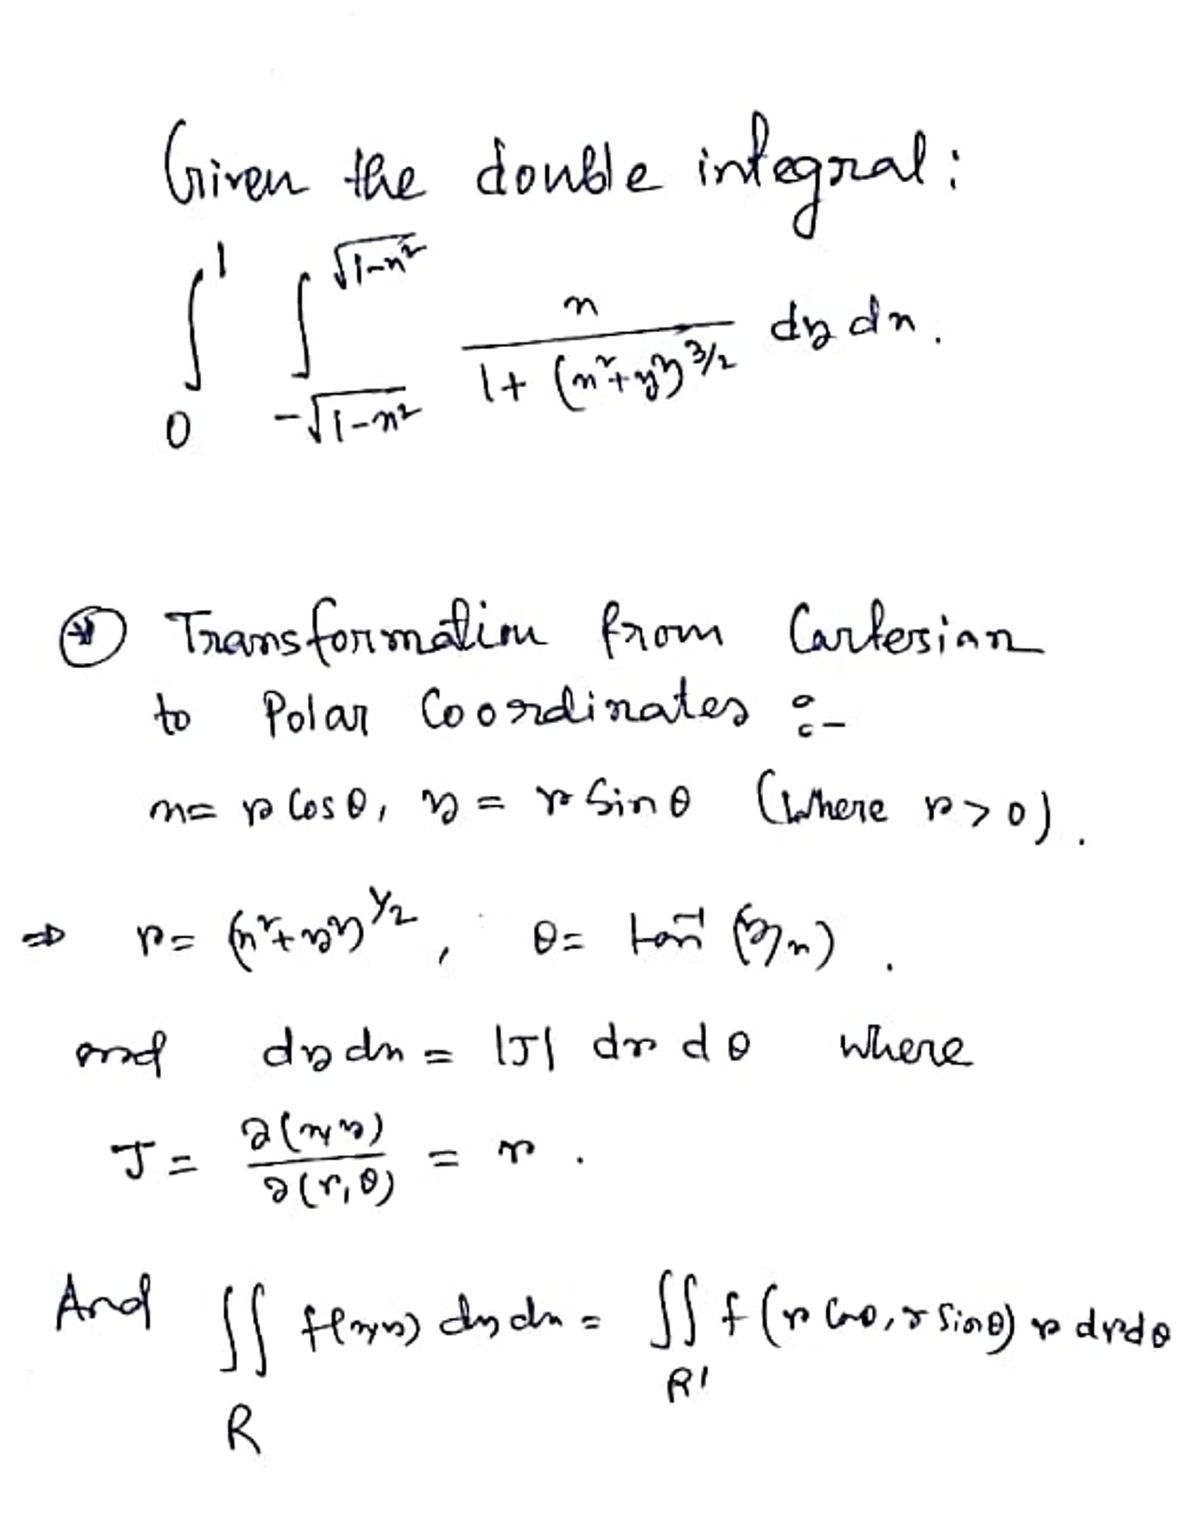 Given the double integral:
∫₀¹ ∫_{-√(1-x²)}^{√(1-x²)} x / (1 + (x²+y²)^{3/2}) dy dx.
⊛ Transformation from Cartesian
to Polar Coordinates :-
x = r Cos θ, y = r Sin θ (Where r > 0).
⇒ r = (x²+y²)^{1/2}, θ = tan⁻¹ (y/x).
and dy dx = |J| dr dθ where
J = ∂(x,y) / ∂(r,θ) = r.
And ∬_R f(x,y) dy dx = ∬_{R'} f(r Cos θ, r Sin θ) r dr dθ